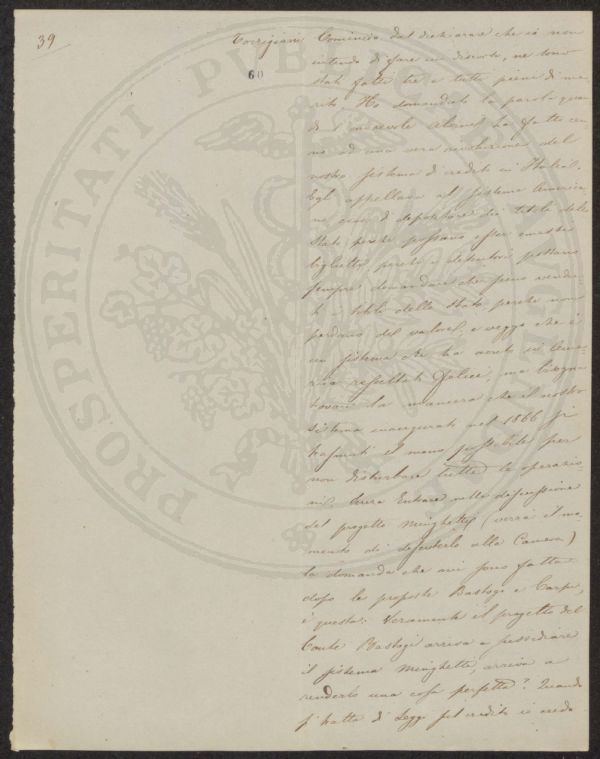 39
60
Torrigiani Comincio dal dichiarare che io non
intendo di fare un discorso, ne sono
stati fatti tre e tutti pieni di me-
rito. Ho domandato la parola quan-
do l'onorevole ha fatto cen-
no ad una vera rivoluzione del
nostro sistema di credito in Italia.
Egli appellava al sistema America-
no cioè di depositare dei titoli dello
Stato perchè possano esser emessi
biglietti, perchè i detentori possano
sempre domandare che sieno vendu-
ti i titoli dello Stato, perchè non
perdano del valore, e veggo che è
un sistema che ha avuto in Ame-
rica resultati felici, ma bisogna
trovare la maniera che il nostro
sistema inaugurato nel 1866 si
trasmuti il meno possibile per
non disturbare tutte le operazio-
ni. Senza entrare nella discussione
del progetto Minghetti (verrà il mo-
mento di discuterlo alla Camera)
la domanda che mi sono fatta
dopo le proposte Bastogi e Carpi,
è questa: Veramente il progetto del
Conte Bastogi arriva a
il sistema Minghetti, arriva a
renderlo una cosa perfetta? Quando
si tratta di Leggi sul credito io credo
PROSPERITATI PUBLICAE AUGENDAE